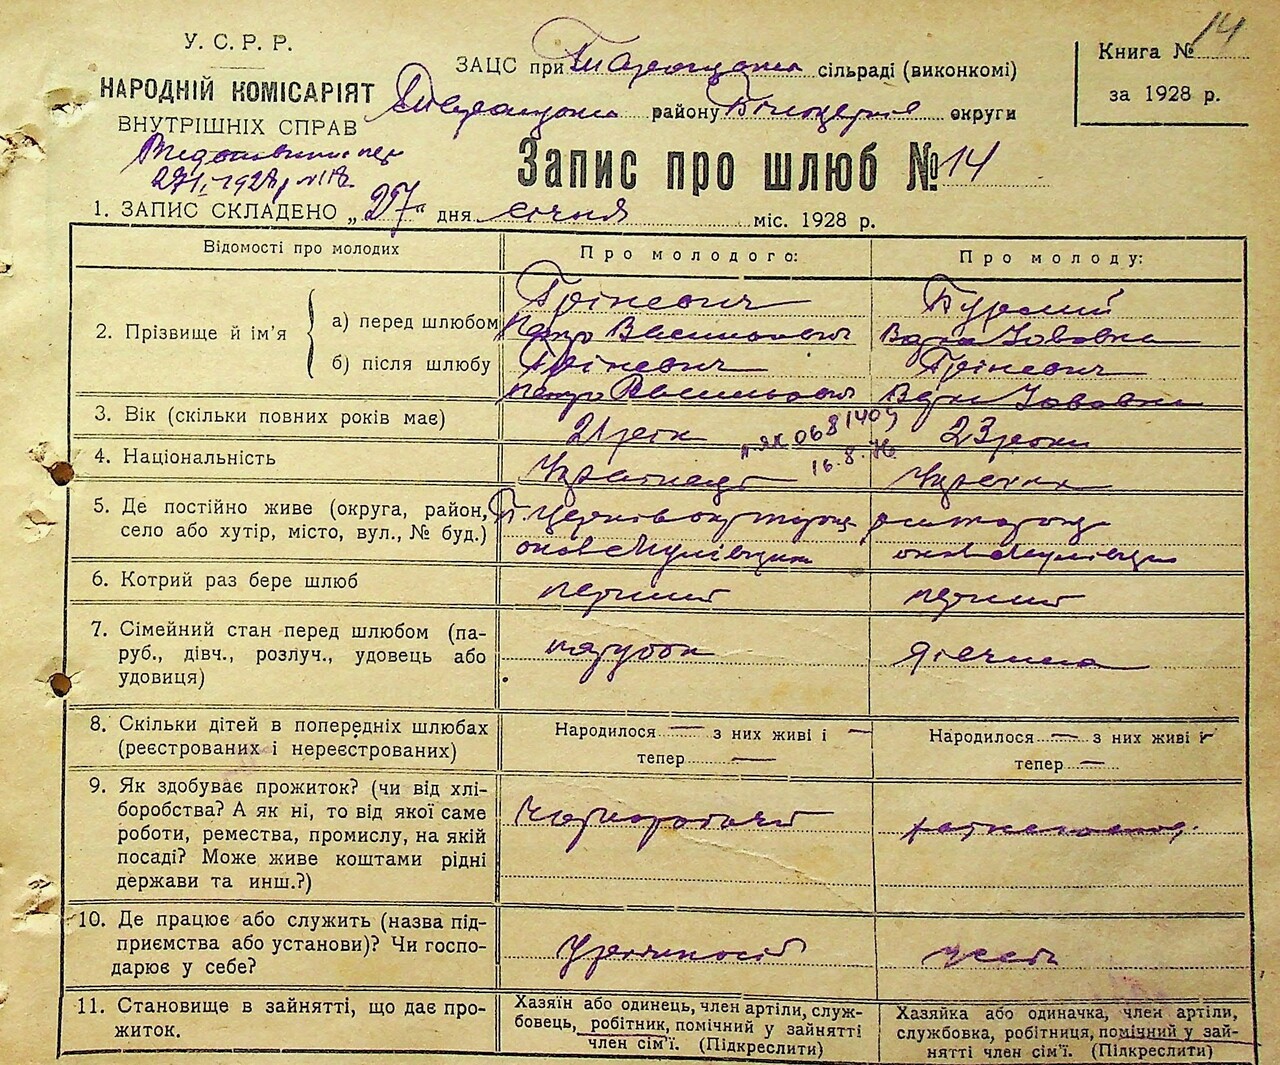 У. С. Р. Р.
НАРОДНІЙ КОМІСАРІЯТ
ВНУТРІШНІХ СПРАВ
27/I 1928 р.
ЗАЦС при сільраді (виконкомі)
району округи
Книга № 14
за 1928 р.
Запис про шлюб № 14
1. ЗАПИС СКЛАДЕНО „27“ дня січня міс. 1928 р.
Відомості про молодих
Про молодого:
Про молоду:
2. Прізвище й ім'я
а) перед шлюбом
б) після шлюбу
Гріневич
Петро Васильович
Гріневич
Петро Васильович
Гріневич
3. Вік (скільки повних років має)
21 рік
23 роки
16.8.76
4. Національність
5. Де постійно живе (округа, район,
село або хутір, місто, вул., № буд.)
6. Котрий раз бере шлюб
перший
перший
7. Сімейний стан перед шлюбом (па-
руб., дівч., розлуч., удовець або
удовиця)
парубок
дівчина
8. Скільки дітей в попередніх шлюбах
(реєстрованих і нереєстрованих)
Народилося — з них живі і —
тепер —
Народилося — з них живі і —
тепер —
9. Як здобуває прожиток? (чи від хлі-
боробства? А як ні, то від якої саме
роботи, ремества, промислу, на якій
посаді? Може живе коштами рідні
держави та инш.?)
чорноробочий
10. Де працює або служить (назва під-
приємства або установи)? Чи госпо-
дарює у себе?
11. Становище в зайнятті, що дає про-
житок.
Хазяїн або одинець, член артіли, служ-
бовець, робітник, помічний у зайнятті
член сім'ї. (Підкреслити)
Хазяйка або одиначка, член артіли,
службовка, робітниця, помічний у зай-
нятті член сім'ї. (Підкреслити)